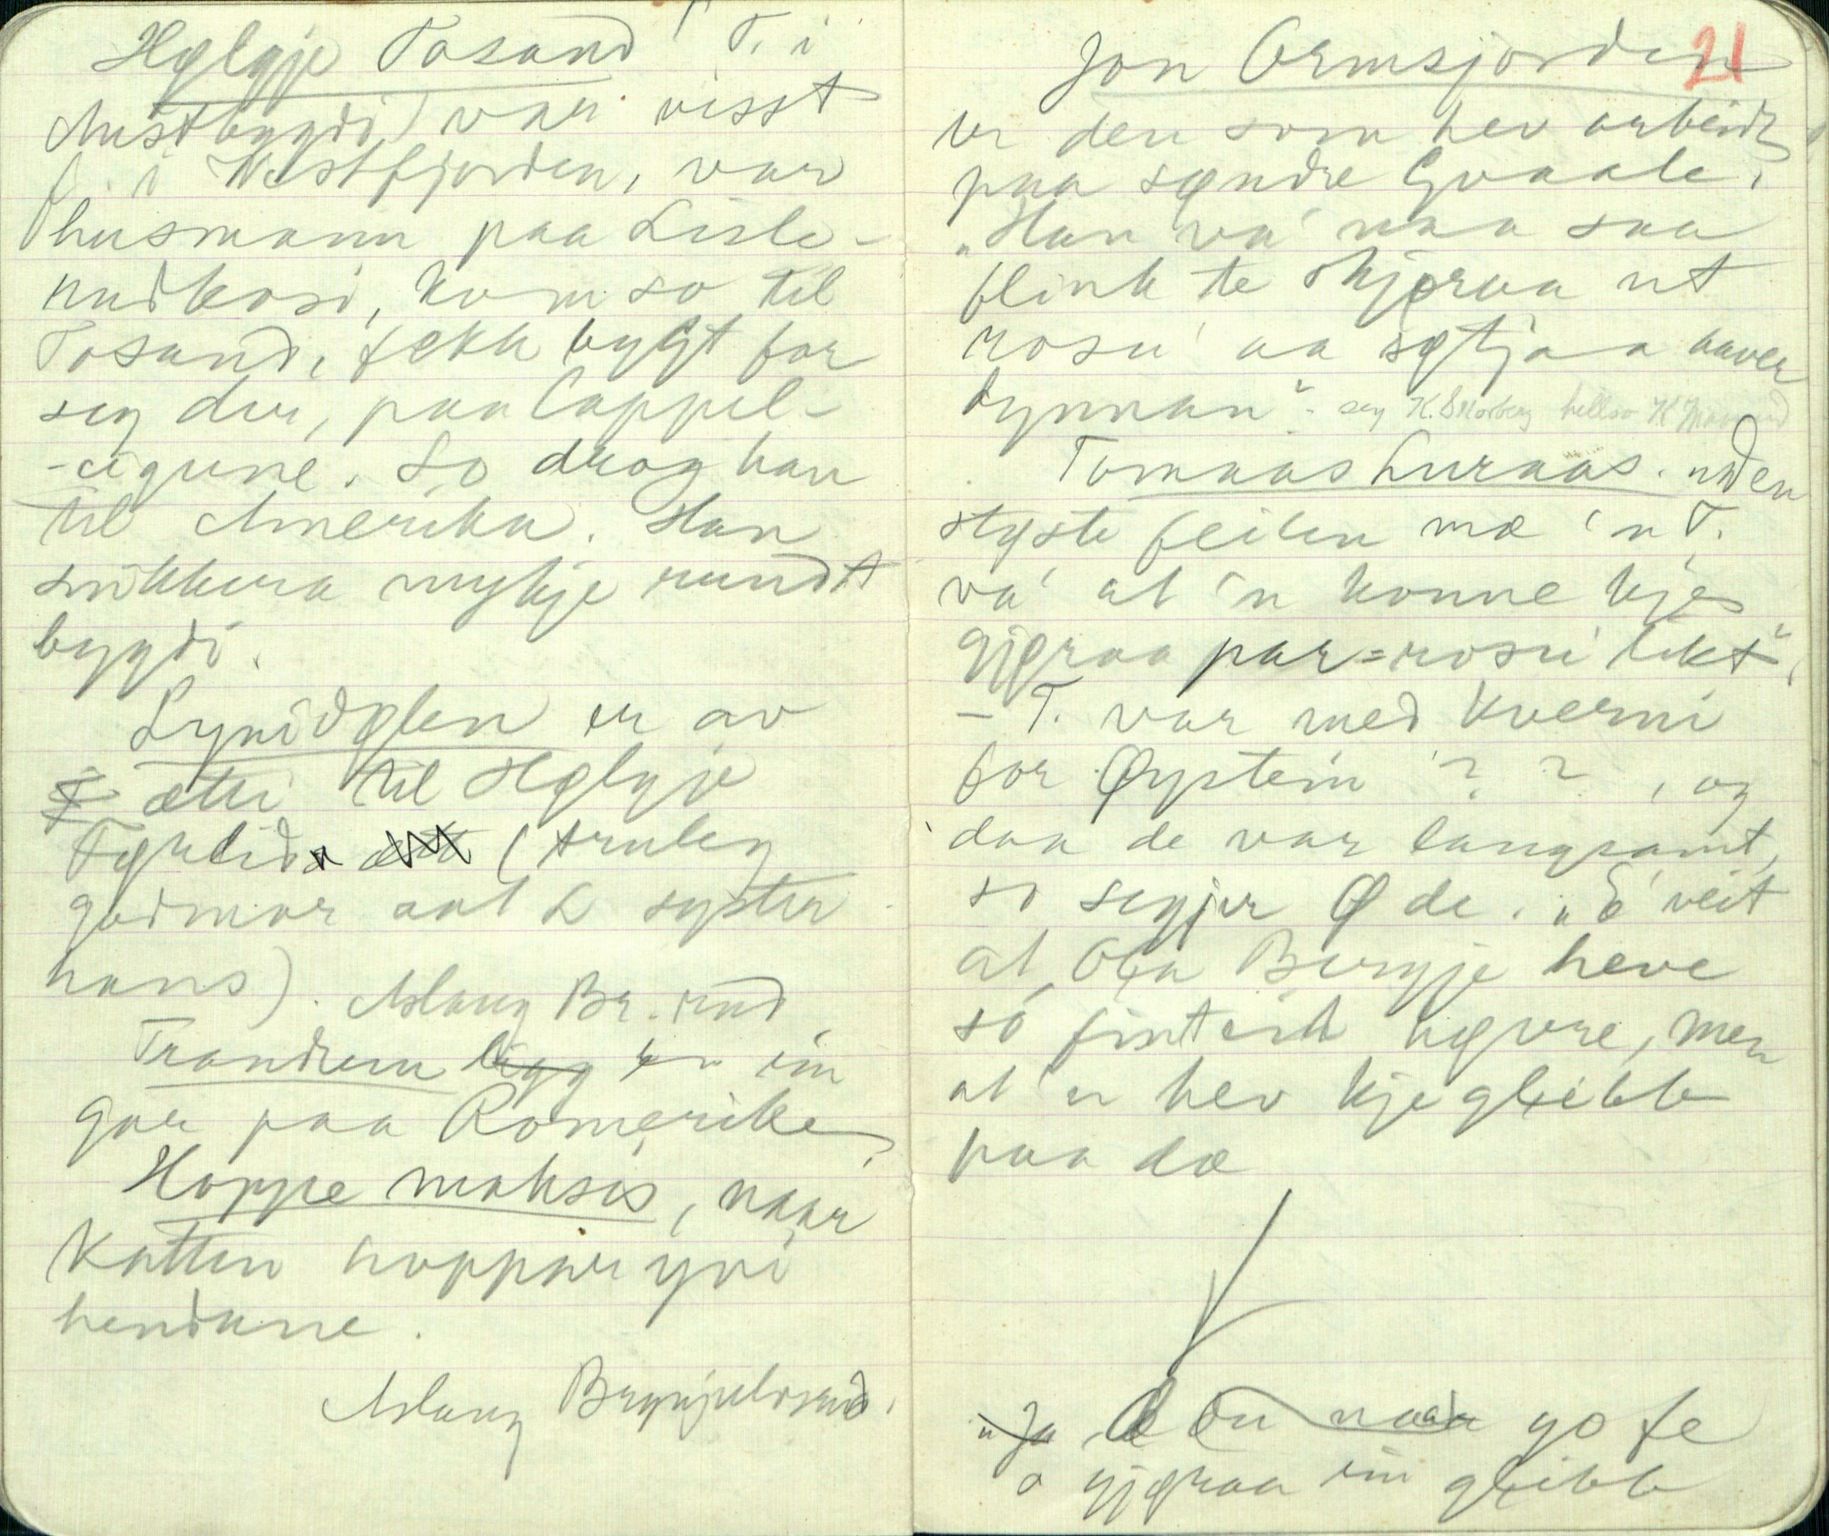 Hølgje Tosand (T. i
Austbygdi) var visst
f. i Vestfjorden, var
husmann paa Lisle-
nudbosi, kom so til
Tosand, fekk bygt for
seg der, paa Cappel-
-eigune. So drog han
til Amerika. Han
snikkera mykje rundt
bygdi.
Synidølen er av
ætti til Hølgje
Tyrlid (truleg
godmor aat L syster
hans). Aslaug Br.rud
Trandrum ligg er ein
gar paa Romerike.
Hoppe maksis, naar
katten hoppar yvi
hendane.
Aslaug Brynjulvsrud.
21
Jon Ormsjorden
er den som hev arbeidt
paa søndre Gvaale.
"Han va' naa saa
flink te skjeraa ut
rosu' aa sætjaa aaver
dynnan". sey K. Skorberg
Tomaas Luraas. "Den
styste feilen mæ 'n T.
va' at 'n konne kje
gjøraa par=rosu' likt",
- T. var med kverni
for Øystein ? ? , og
daa de var langsamt,
so segjer Ø de. "E veit
at Ola Bergje heve
so fint eit høvre, men
at 'n hev kje gleibb
paa dæ
"Ja, du naa go te
o gjøraa ein gleibb